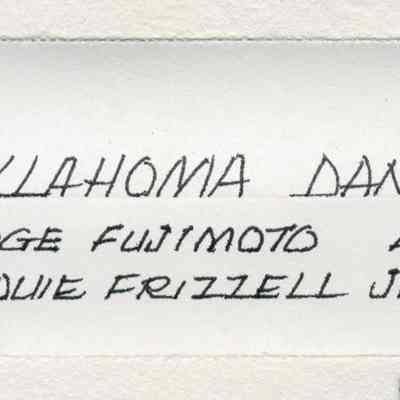 KLAHOMA DAN
GE FUJIMOTO
OUIE FRIZZELL J